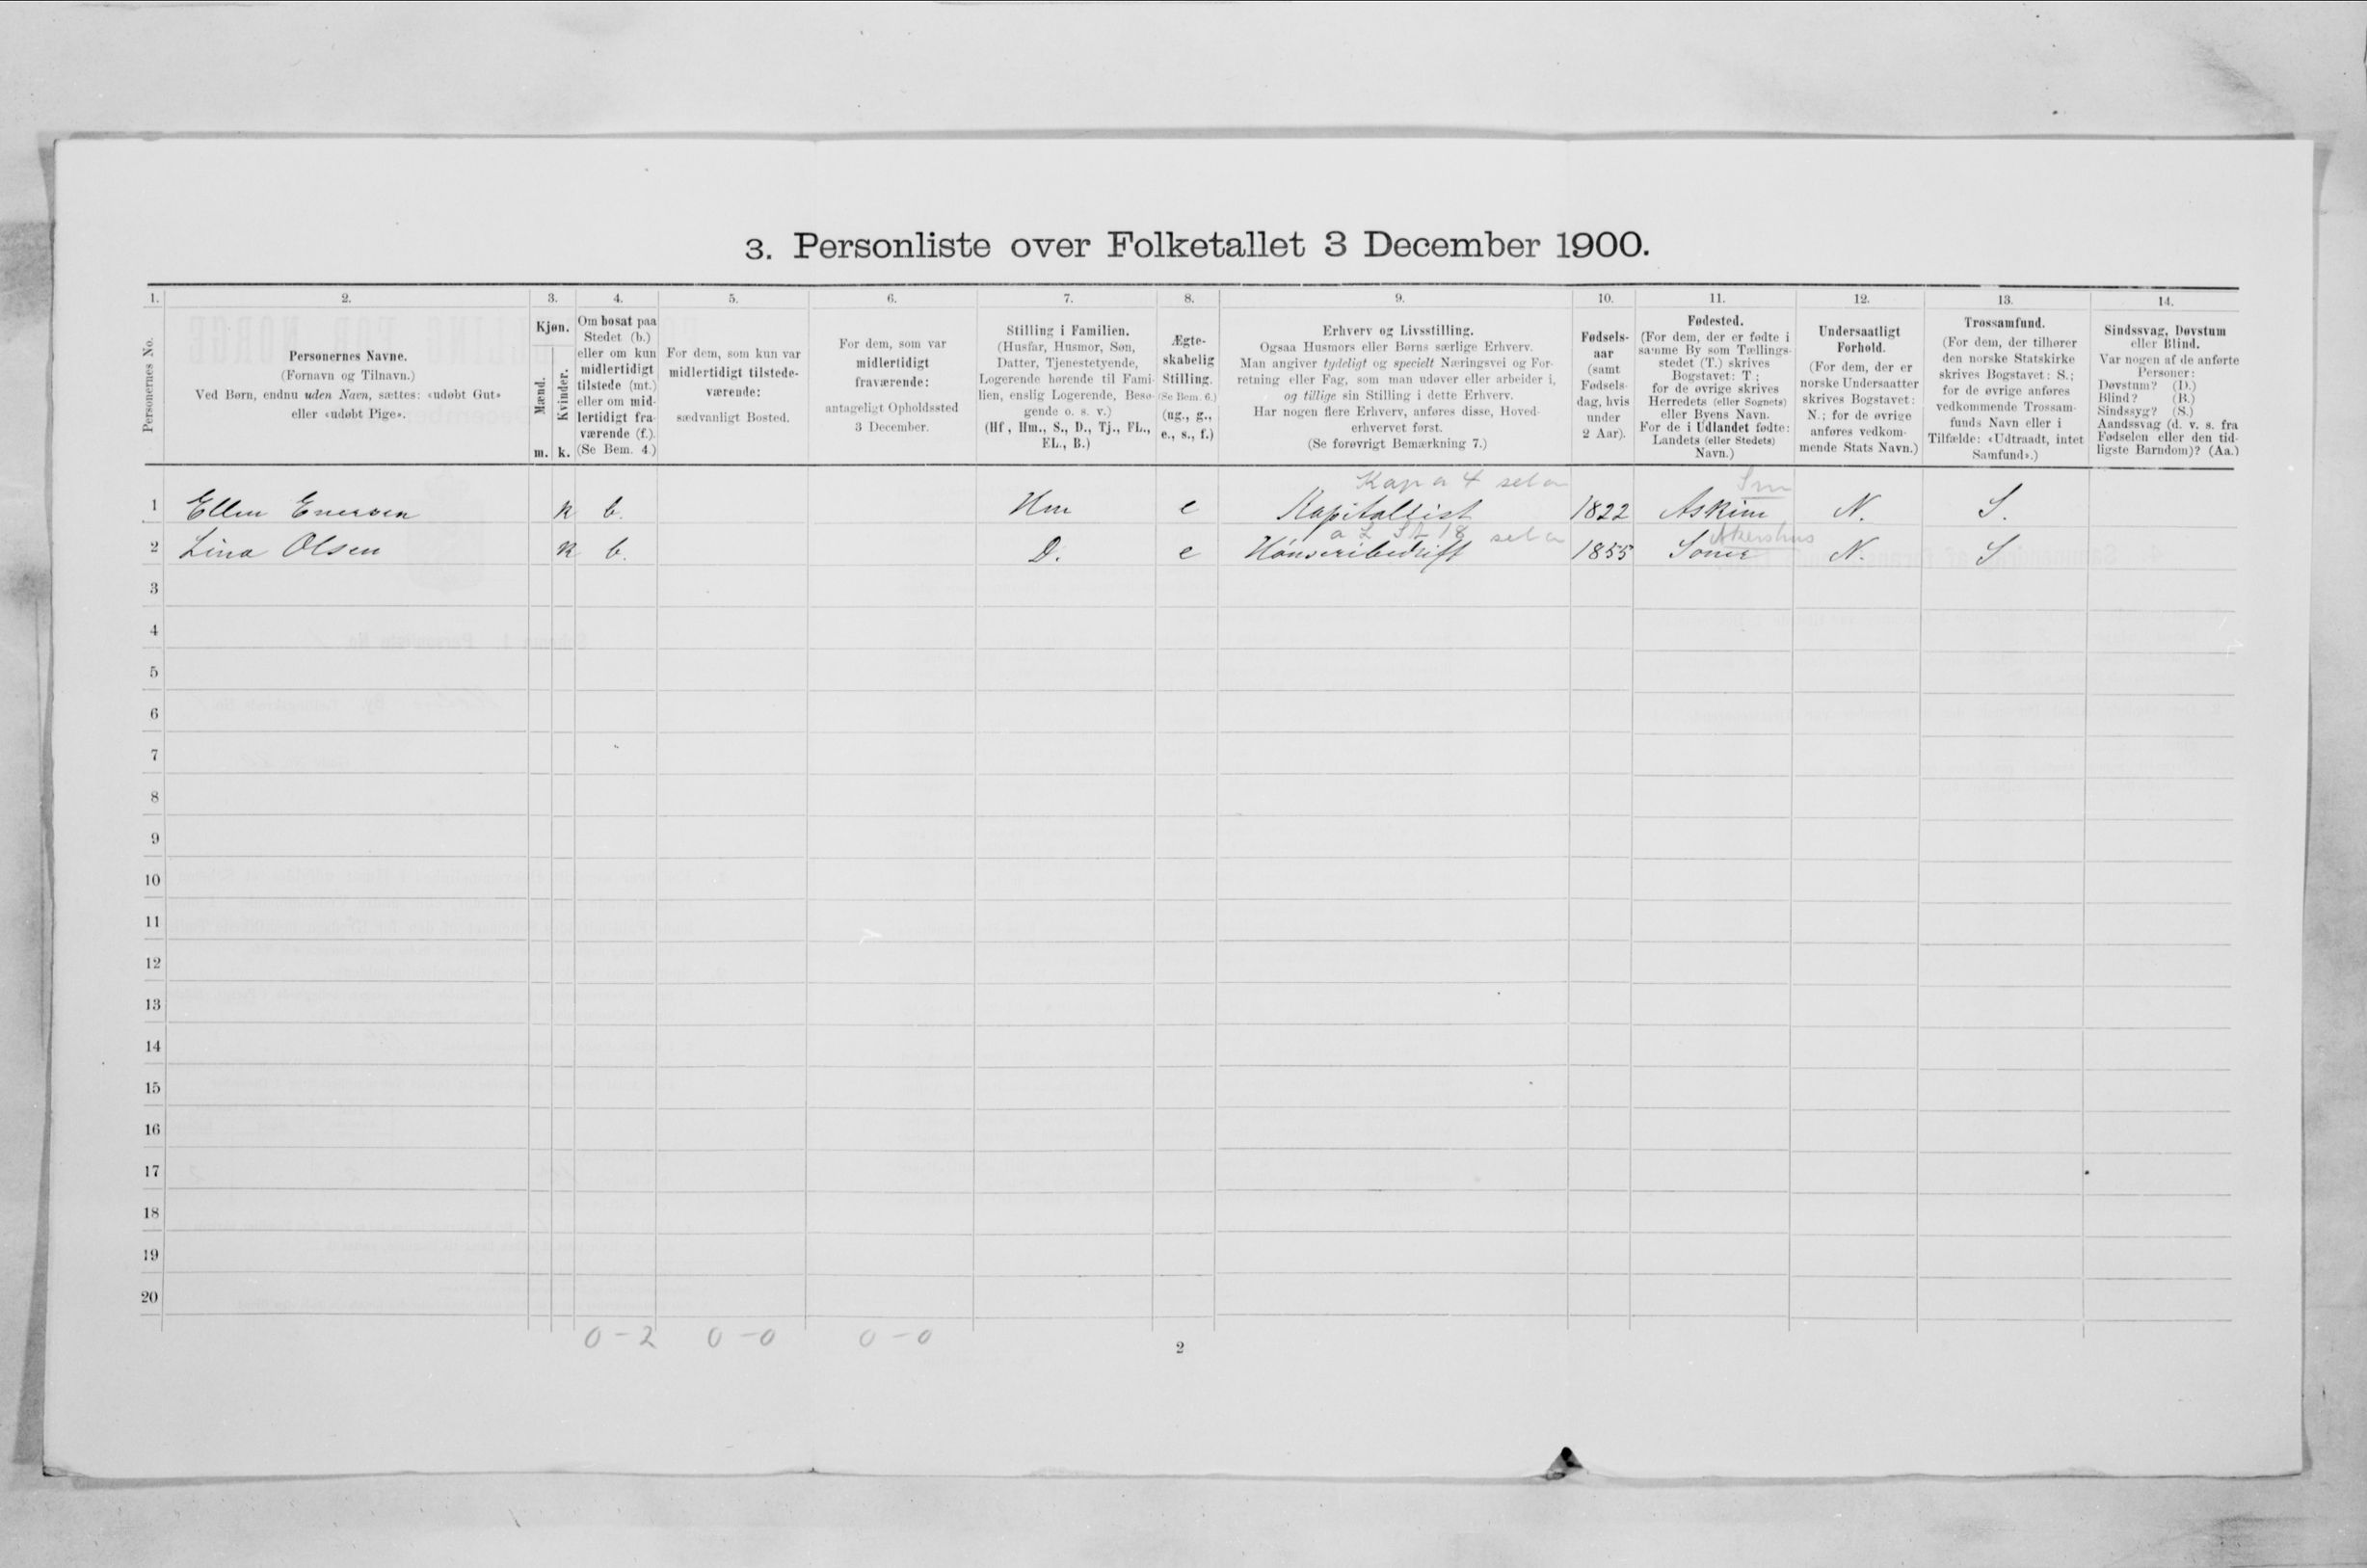 3. Personliste over Folketallet 3 December 1900.
1. 2. 3. 4. 5. 6. 7. 8. 9. 10. 11. 12. 13. 14.
Personernes No.
Personernes Navne.
(Fornavn og Tilnavn.)
Ved Børn, endnu uden Navn, sættes: «udøbt Gut»
eller «udøbt Pige».
Kjøn.
Mænd.
Kvinder.
m. k.
Om bosat paa
Stedet (b.)
eller om kun
midlertidigt
tilstede (mt.)
eller om mid-
lertidigt fra-
værende (f.).
(Se Bem. 4.)
For dem, som kun var
midlertidigt tilstede-
værende:
sædvanligt Bosted.
For dem, som var
midlertidigt
fraværende:
antageligt Opholdssted
3 December.
Stilling i Familien.
(Husfar, Husmor, Søn,
Datter, Tjenestetyende,
Logerende hørende til Fami-
lien, enslig Logerende, Besø-
gende o. s. v.)
(Hf, Hm., S., D., Tj., FL.,
EL., B.)
Ægte-
skabelig
Stilling.
(Se Bem. 6.)
(ug., g.,
e., s., f.)
Erhverv og Livsstilling.
Ogsaa Husmors eller Børns særlige Erhverv.
Man angiver tydeligt og specielt Næringsvei og For-
retning eller Fag, som man udøver eller arbeider i,
og tillige sin Stilling i dette Erhverv.
Har nogen flere Erhverv, anføres disse, Hoved-
erhvervet først.
(Se forøvrigt Bemærkning 7.)
Fødsels-
aar
(samt
Fødsels-
dag, hvis
under
2 Aar).
Fødested.
(For dem, der er fødte i
samme By som Tællings-
stedet (T.) skrives
Bogstavet: T;
for de øvrige skrives
Herredets (eller Sognets)
eller Byens Navn.
For de i Udlandet fødte:
Landets (eller Stedets)
Navn.)
Undersaatligt
Forhold.
(For dem, der er
norske Undersaatter
skrives Bogstavet:
N.; for de øvrige
anføres vedkom-
mende Stats Navn.)
Trossamfund.
(For dem, der tilhører
den norske Statskirke
skrives Bogstavet: S.;
for de øvrige anføres
vedkommende Trossam-
funds Navn eller i
Tilfælde: «Udtraadt, intet
Samfund».)
Sindssvag, Døvstum
eller Blind.
Var nogen af de anførte
Personer:
Døvstum? (D.)
Blind? (B.)
Sindssyg? (S.)
Aandssvag (d. v. s. fra
Fødselen eller den tid-
ligste Barndom)? (Aa.)
Kap a 4 sel a Sm
1 Ellen k b. Hm e Kapitallist 1822 Askim N. S.
18 sel a Akershus
2 Lina Olsen k b. D. e Hønseribedrift 1855 N. S
3
4
5
6
7
8
9
10
11
12
13
14
15
16
17
18
19
20
0-2 0-0 0-0
2